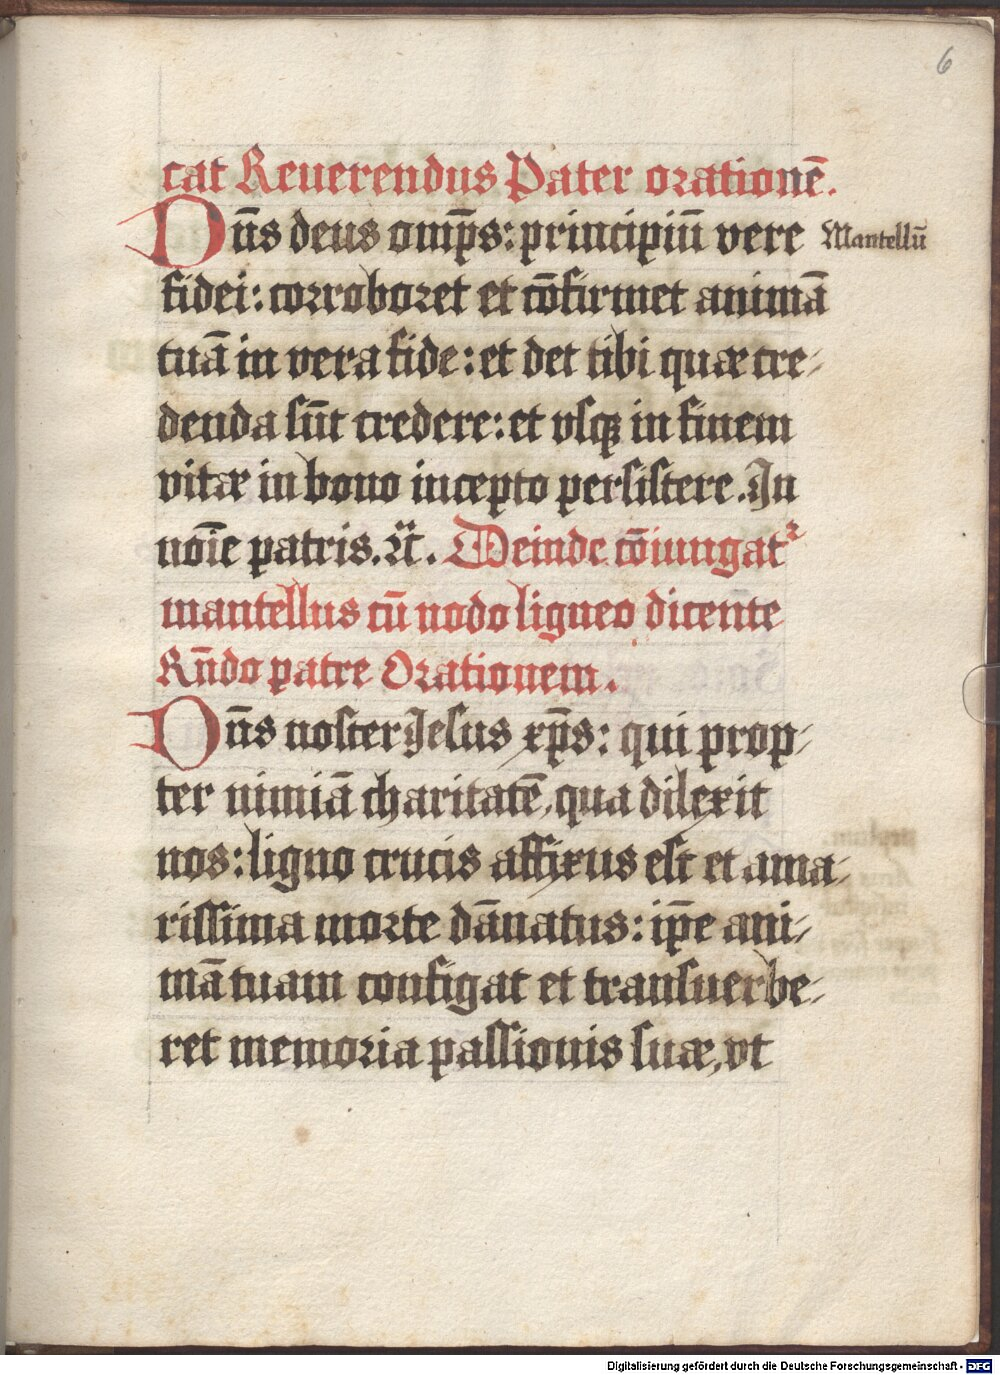 6
cat Reuerendus Pater orationē.
Dn̄s deus omp̄s: principiū vere
Mantellū
fidei: corroboret et cōfirmet animā
tuā in vera fide: et det tibi quæ cre⸗
denda sūt credere: et vsqꝫ in finem
vitæ in bono incepto persistere. In
noīe patris. ⁊c̈. Deinde cōiungatᷣ
mantellus cū nodo ligneo dicente
Rn̄do patre Orationem.
Dn̄s noster Jesus xp̄s: qui prop⸗
ter nimiā charitatē, qua dilexit
nos: ligno crucis affixus est et ama⸗
rissima morte dānatus: ip̄e ani⸗
mā tuam configat et transuerbe⸗
ret memoria passionis suæ, vt
Digitalisierung gefördert durch die Deutsche Forschungsgemeinschaft - DFG